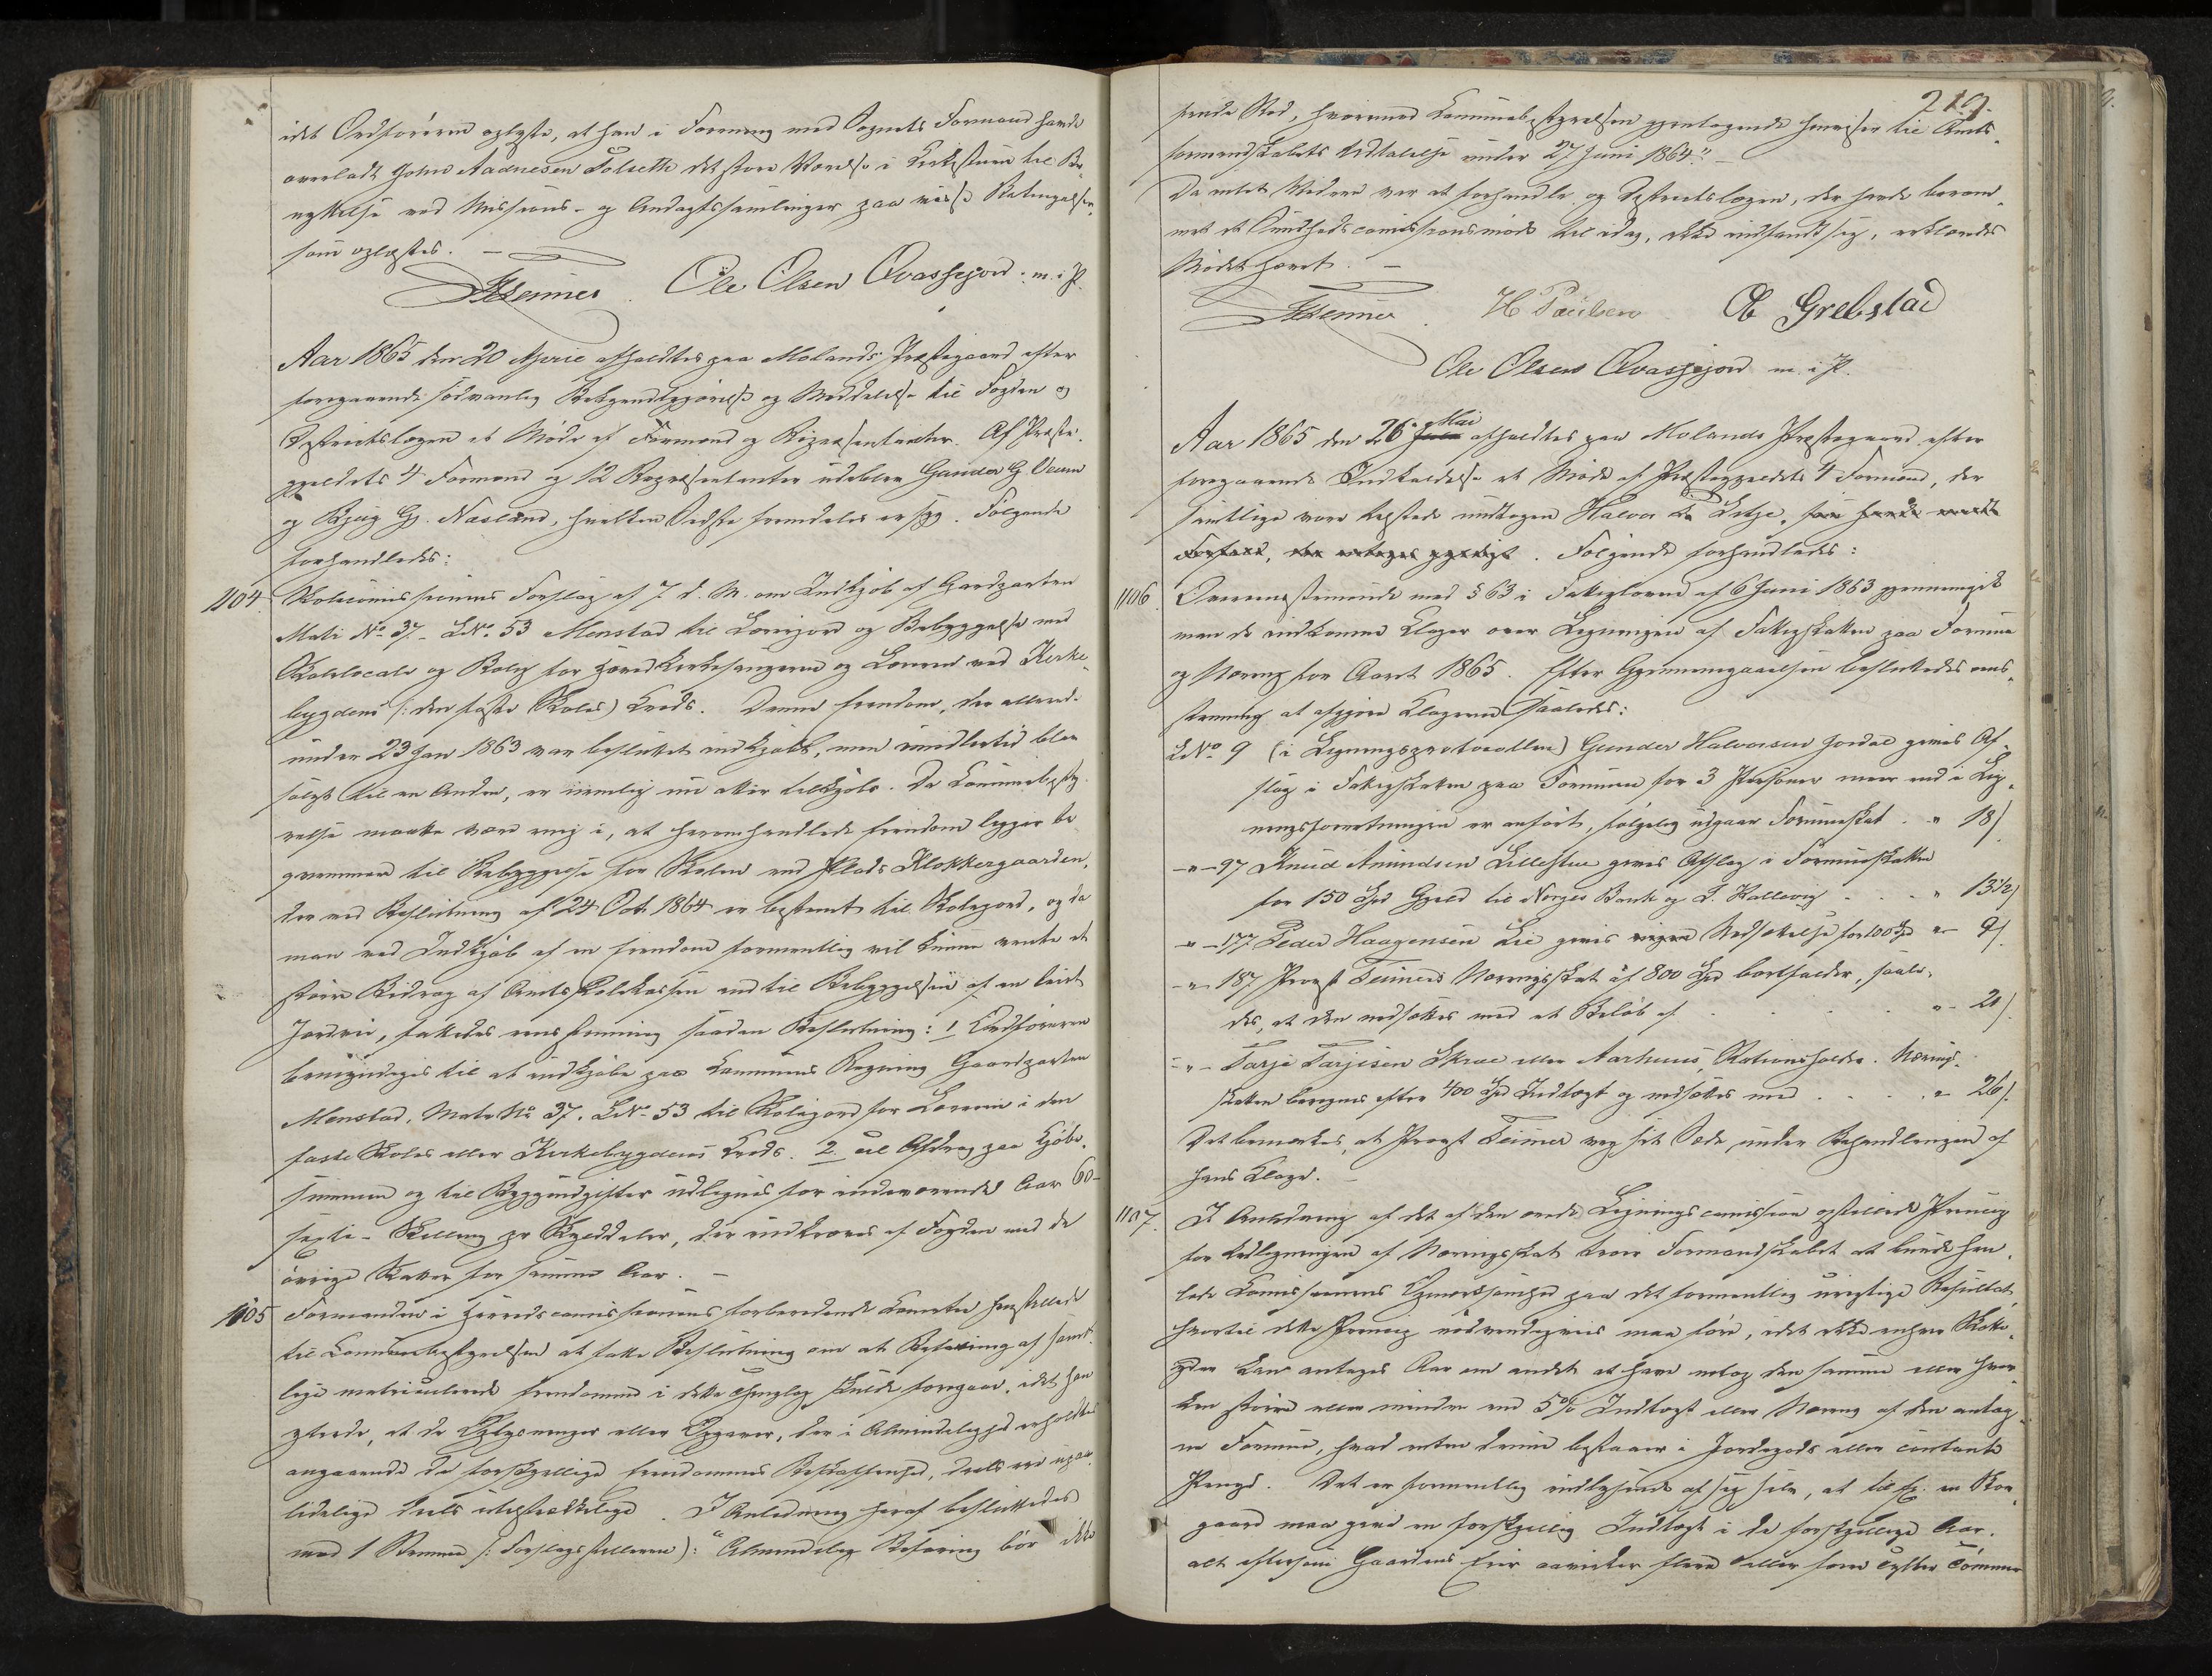 idet Ordføreren oplyste, at han i Forening med Sognets Formand havde
overladt John Aadnesen Folseth det store Værelse i Kirkestuen til Be-
nyttelse ved Missions- og Andagtssamlinger paa visse Betingelser,
som oplæstes. —
Ole Olsen Qvasfjord m. i P.
Aar 1865 den 20 April afholdtes paa Molands Præstegaard efter
foregaaende sødvanlig Bekjendtgjørelse og Meddelelse til Fogden og
Distrietslægen et Møde af Formænd og Repræsentanter. Af Præste-
gjeldets 4 Formænd og 12 Repræsentanter udeblev Gunder G. Veum
og Bjug G. Næsland, hvilken Sidste fremdeles er syg. Følgende
forhandledes:
1104. Skolecomissionens Forslag af 7 d. M. om Indkjøb af Gaardparten
Matr No 37. LNo. 53 Menstad til Lærerjord og Bebyggelse med
Skolelocale og Bolig for Kirkesangeren og Læreren ved Kirke-
bygdens (: den faste Skoles) Kreds. Denne Eiendom, der allerede
under 23 Jan 1863 var besluttet indkjøbt, men imidlertid blev
solgt til en Anden, er nemlig nu atter tilkjøbs. Da Communebesty-
relse maatte være enig i, at heromhandlede Eiendom ligger be-
qvemmere til Bebyggelse for Skolen end Plads Klokkergaarden,
der ved Beslutning af 24 Oct. 1864 er bestemt til Skolejord, og da
man ved Indkjøb af en Eiendom formentlig vil kunne vente et
større Bidrag af Amtsskolekassen end til Bebyggelsen af en leiet
Jordvei, fattedes eenstemmig saadan Beslutning: 1 Ordføreren
bemyndiges til at indkjøbe paa Communens Regning Gaardparten
Menstad, Matr No 37. LNo. 53 til Skolejord for Læreren i den
faste Skoles eller Kirkebygdens Kreds. 2. til Afdrag paa Kjøbe-
summen og til Byggeudgifter udlignes for indeværende Aar 60 -
sexti - Skilling pr Skylddaler, der indkræves af Fogden med de
øvrige Skatter for samme Aar. —
1105 Formanden i Herredscomissionens forberedende Comitee henstillede
til Communebestyrelsen at fatte Beslutning om at Befaring af samt-
lige matriculerede Eiendomme i dette Thinglag skulde foregaae, idet han
yttrede, at de Oplysninger eller Opgaver, der i Almindelighed erholdtes
angaaende de forskjellige Eiendommes Beskaffenhed, deels ere upaa-
lidelige deels utilstrækkelige. I Anledning heraf besluttedes
mod 1 Stemme (: Forslagsstillerens): "Almindelig Befaring bør ikke
219.
finde Sted, hvorimod Communebestyrelsen gjentagende henviser til Amts-
formandskabets Udtalelse under 27 Juni 1864." —
Da intet Videre var at forhandle og Distrietslægen, der havde beram-
met et Sundhedscomissionsmøde til idag, ikke indfandt sig, erklæredes
Mødet hævet. —
H Paulsen O Grebstad
Ole Olsen Qvasfjord m. i P.
Aar 1865 den 26 Mai afholdtes paa Molands Præstegaard efter
foregaaende Indkaldelse et Møde af Præstegjeldets 4 Formænd, der
samtlige vare tilstede undtagen Halvor Lytje, som havde meldt
Forfald, der antages gyldigt. Følgende forhandledes:
1106. Overensstemmende med § 63 i Fattigloven af 6 Juni 1863 gjennemgik
man de indkomne Klager over Ligningen af Fattigskatten paa Formue
og Næring for Aaret 1865. Efter Gjennemgaaelsen besluttedes eens-
stemmig at afgjøre Klagerne saaledes:
LNo 9 (i Ligningsprotocollen) Gunder Halvorsen Jordal gives Af-
slag i Fattigskatten paa Formuen for 3 Personer mere end i Lig-
ningsforretningen er anført, følgelig udgaar Formueskat . " 18/
-"- 97 Knud Amundsen Lillestue gives Afslag i Formueskatten
for 150 Spd Gjeld til Norges Bank og S. Kallevig . . " 13½/
-"- 177 Peder Haagensen Lie gives Nedsættelse for 100 Spd "- 9/
-"- 187 Provst Teimers Næringsskat af 800 Spd bortfalder, saale-
des, at den nedsættes med et Beløb af . . . . "- 20/
-"- Tarje Tarjesen Skrae eller Aarhuus, Stationsholder. Nærings-
skatten beregnes efter 400 Spd Indtægt og nedsættes med . . . "- 26/.
Det bemærkes, at Provst Teimer veg sit Sæde under Behandlingen af
hans Klage. —
1107. I Anledning af det af den Lignings comission opstillede Princip
for Udligningen af Næringsskat troer Formandskabet at burde hen-
lede Comissionens Opmærksomhed paa det formentlig urigtige Resultat,
hvortil dette Princip nødvendigviis maa føre, idet ikke enhver Skatte-
yder kan antages Aar om andet at have netop den samme eller hver-
ken større eller mindre end 5% Indtægt eller Næring af den antag-
ne Formue, hvad enten denne bestaaer i Jordegods eller contante
Penge. Det er formentlig indlysende af sig selv, at til Ex. en Skov-
gaard maa give en forskjellig Indtægt i de forskjellige Aar,
alt eftersom Gaardens Eier aarrsker flere eller færre Tylter Tømmer